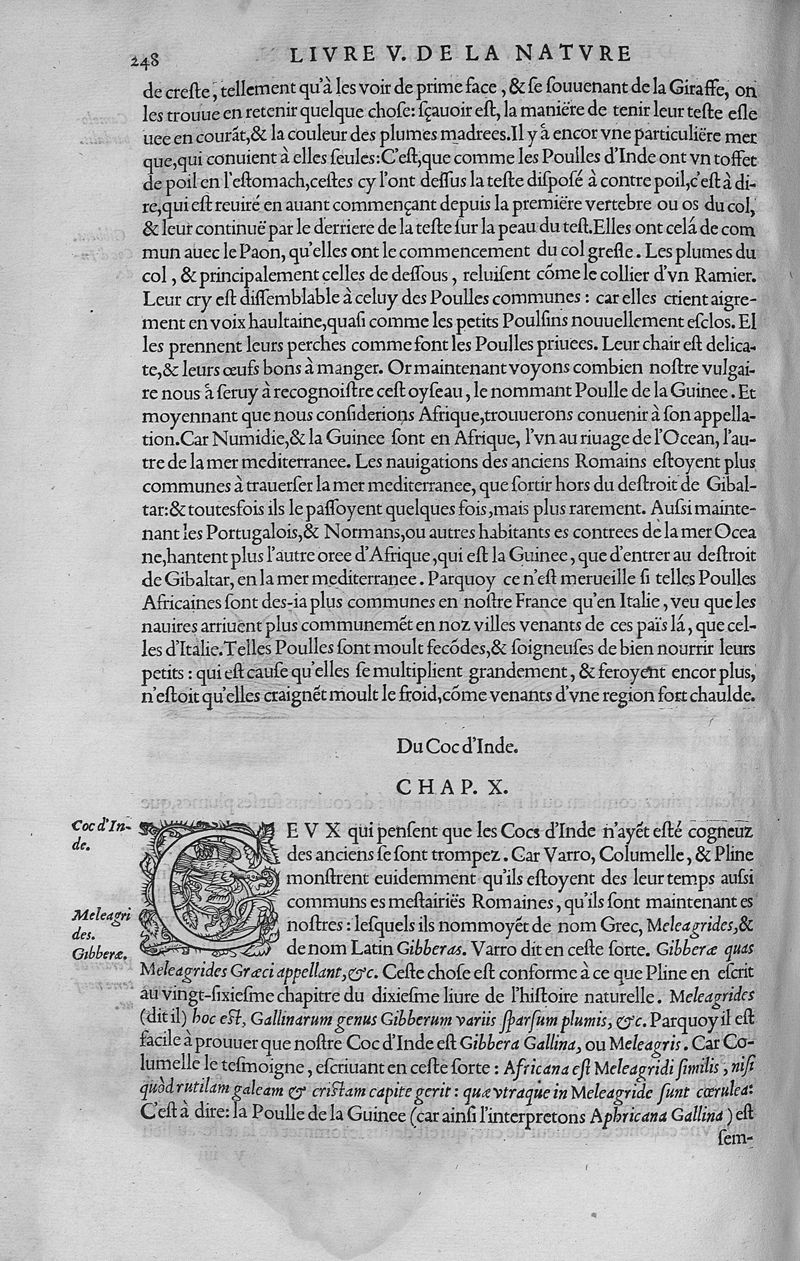 248 LIVRE V. DE LA NATVRE
de creſte, tellement qu'à les voir de prime face, & ſe ſouuenant de la Giraffe, on
les trouue en retenir quelque choſe: ſçauoir eſt, la maniëre de tenir leur teſte eſle
uee en courãt, & la couleur des plumes madrees. Il y á encor vne particuliëre mer
que, qui conuient à elles ſeules: C'eſt, que comme les Poulles d'Inde ont vn toffet
de poil en l'eſtomach, ceſtes cy l'ont deſſus la teſte diſpoſé à contre poil, c'eſt à di-
re, qui eſt reuiré en auant commençant depuis la premiëre vertebre ou os du col,
& leur continuë par le derriere de la teſte ſur la peau du teſt. Elles ont celá de com
mun auec le Paon, qu'elles ont le commencement du col greſle. Les plumes du
col, & principalement celles de deſſous, reluiſent cõme le collier d'vn Ramier.
Leur cry eſt diſſemblable à celuy des Poulles communes: car elles crient aigre-
ment en voix haultaine, quaſi comme les petits Poulſins nouuellement eſclos. El
les prennent leurs perches comme font les Poulles priuees. Leur chair eſt delica-
te, & leurs œufs bons à manger. Or maintenant voyons combien noſtre vulgai-
re nous á ſeruy à recognoiſtre ceſt oyſeau, le nommant Poulle de la Guinee. Et
moyennant que nous conſiderions Afrique, trouuerons conuenir à ſon appella-
tion. Car Numidie, & la Guinee ſont en Afrique, l'vn au riuage de l'Ocean, l'au-
tre de la mer mediterranee. Les nauigations des anciens Romains eſtoyent plus
communes à trauerſer la mer mediterranee, que ſortir hors du deſtroit de Gibal-
tar: & toutesfois ils le paſſoyent quelques fois, mais plus rarement. Auſsi mainte-
nant les Portugalois, & Normans, ou autres habitants es contrees de la mer Ocea
ne, hantent plus l'autre oree d'Afrique, qui eſt la Guinee, que d'entrer au deſtroit
de Gibaltar, en la mer mediterranee. Parquoy ce n'eſt merueille ſi telles Poulles
Africaines ſont des-ia plus communes en noſtre France qu'en Italie, veu que les
nauires arriuent plus communemẽt en noz villes venants de ces païs lá, que cel-
les d'Italie. Telles Poulles ſont moult fecõdes, & ſoigneuſes de bien nourrir leurs
petits: qui eſt cauſe qu'elles ſe multiplient grandement, & feroyent encor plus,
n'eſtoit qu'elles craignẽt moult le froid, cõme venants d'vne region fort chaulde.
Du Coc d'Inde.
CHAP. X.
Coc d'In-
de.
CEVX qui penſent que les Cocs d'Inde n'ayẽt eſté cogneuz
des anciens ſe ſont trompez. Car Varro, Columelle, & Pline
monſtrent euidemment qu'ils eſtoyent des leur temps auſsi
communs es meſtairiës Romaines, qu'ils ſont maintenant es
Meleagri
des.
noſtres: leſquels ils nommoyẽt de nom Grec, Meleagrides, &
Gibberæ.
de nom Latin Gibberas. Varro dit en ceſte ſorte. Gibberæ quas
Meleagrides Græci appellant, &c. Ceſte choſe eſt conforme à ce que Pline en eſcrit
au vingt-ſixieſme chapitre du dixieſme liure de l'hiſtoire naturelle. Meleagrides
(dit il) hoc eſt, Gallinarum genus Gibberum variis ſparſum plumis, &c. Parquoy il eſt
facile à prouuer que noſtre Coc d'Inde eſt Gibbera Gallina, ou Meleagris. Car Co-
lumelle le teſmoigne, eſcriuant en ceſte ſorte: Africana eſt Meleagridi ſimilis, niſi
quòd rutilam galeam & criſtam capite gerit: quæ vtraque in Meleagride ſunt cœrulea:
C'eſt à dire: la Poulle de la Guinee (car ainſi l'interpretons Aphricana Gallina) eſt
ſem-